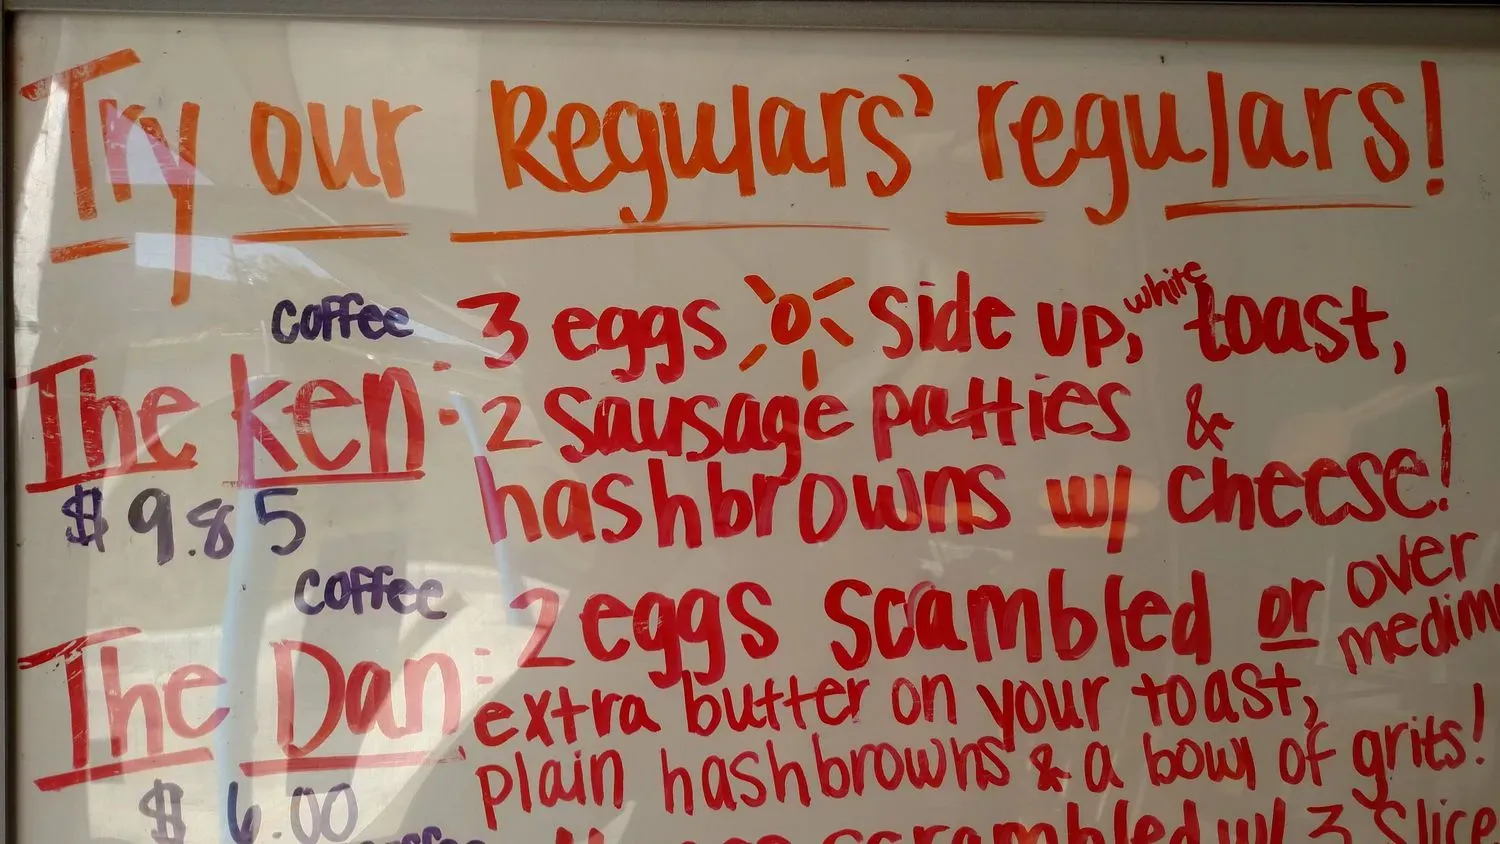 Try our Regulars' regulars!
coffee
The Ken: 3 eggs side up, white toast,
2 sausage patties &
hashbrowns w/ cheese!
$9.85
coffee
The Dan: 2 eggs scambled or over medium
extra butter on your toast,
plain hashbrowns & a bowl of grits!
$6.00
coffee
scrambled w/ 3 slice